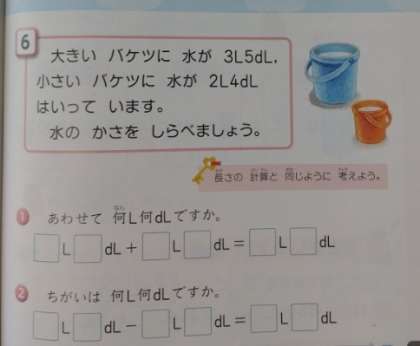 6
大きい バケツに 水が 3L5dL,
小さい バケツに 水が 2L4dL
はいって います。
水の かさを しらべましょう。
長さの 計算と 同じように 考えよう。
1 あわせて 何L何dLですか。
□L□dL+□L□dL=□L□dL
2 ちがいは 何L何dLですか。
□L□dL-□L□dL=□L□dL